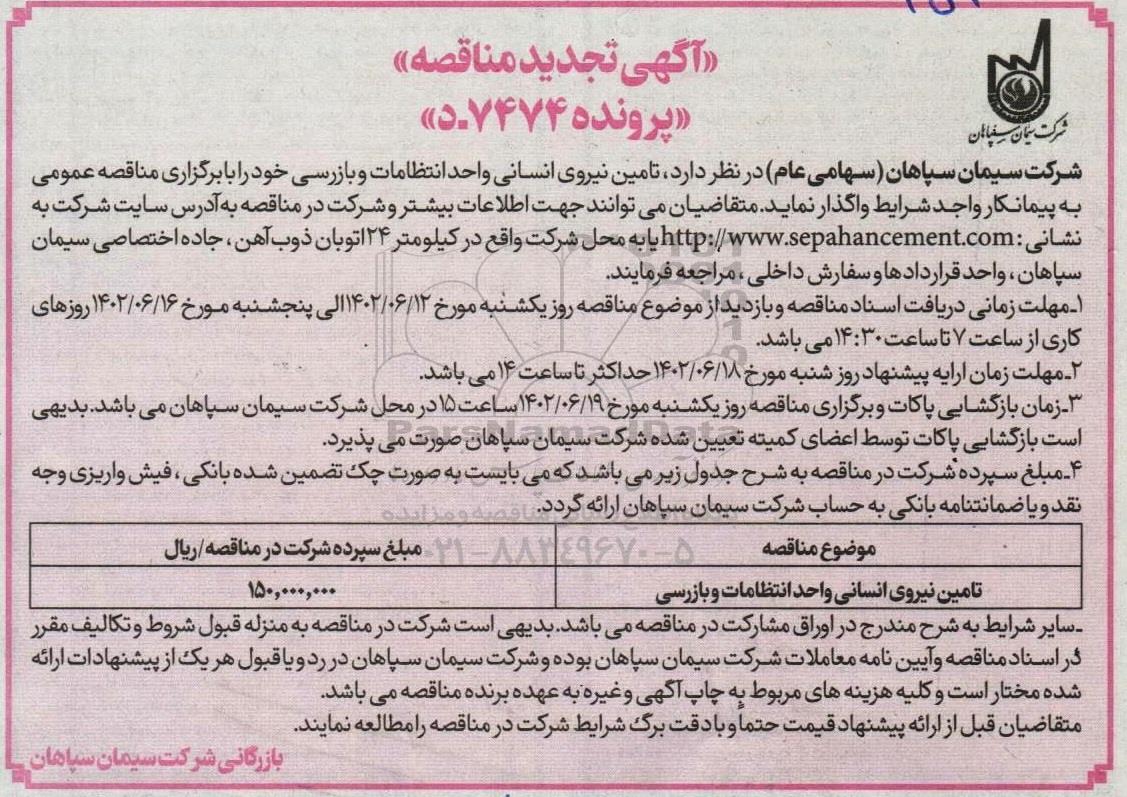 شرکت سیمان سپاهان
«آگهی تجدید مناقصه»
«پرونده ۷۴۷۴-د»
شرکت سیمان سپاهان (سهامی عام) در نظر دارد، تامین نیروی انسانی واحد انتظامات و بازرسی خود را با برگزاری مناقصه عمومی
به پیمانکار واجد شرایط واگذار نماید. متقاضیان می توانند جهت اطلاعات بیشتر و شرکت در مناقصه به آدرس سایت شرکت به
نشانی: http://www.sepahancement.com یا به محل شرکت واقع در کیلومتر ۲۴ اتوبان ذوب آهن، جاده اختصاصی سیمان
سپاهان، واحد قراردادها و سفارش داخلی، مراجعه فرمایند.
۱-مهلت زمانی دریافت اسناد مناقصه و بازدید از موضوع مناقصه روز یکشنبه مورخ ۱۴۰۲/۰۶/۱۲ الی پنجشنبه مورخ ۱۴۰۲/۰۶/۱۶ روزهای
کاری از ساعت ۷ تا ساعت ۱۴:۳۰ می باشد.
۲-مهلت زمان ارایه پیشنهاد روز شنبه مورخ ۱۴۰۲/۰۶/۱۸ حداکثر تا ساعت ۱۴ می باشد.
۳-زمان بازگشایی پاکات و برگزاری مناقصه روز یکشنبه مورخ ۱۴۰۲/۰۶/۱۹ ساعت ۱۵ در محل شرکت سیمان سپاهان می باشد. بدیهی
است بازگشایی پاکات توسط اعضای کمیته تعیین شده شرکت سیمان سپاهان صورت می پذیرد.
۴-مبلغ سپرده شرکت در مناقصه به شرح جدول زیر می باشد که می بایست به صورت چک تضمین شده بانکی، فیش واریزی وجه
نقد و یا ضمانتنامه بانکی به حساب شرکت سیمان سپاهان ارائه گردد.
موضوع مناقصه مبلغ سپرده شرکت در مناقصه/ریال
تامین نیروی انسانی واحد انتظامات و بازرسی ۱۵۰,۰۰۰,۰۰۰
ParsNamadData
۰۲۱-۸۸۳۴۹۶۷۰-۵
-سایر شرایط به شرح مندرج در اوراق مشارکت در مناقصه می باشد. بدیهی است شرکت در مناقصه به منزله قبول شروط و تکالیف مقرر
در اسناد مناقصه وآیین نامه معاملات شرکت سیمان سپاهان بوده و شرکت سیمان سپاهان در رد و یا قبول هر یک از پیشنهادات ارائه
شده مختار است و کلیه هزینه های مربوط به چاپ آگهی و غیره به عهده برنده مناقصه می باشد.
متقاضیان قبل از ارائه پیشنهاد قیمت حتماً و با دقت برگ شرایط شرکت در مناقصه را مطالعه نمایند.
بازرگانی شرکت سیمان سپاهان